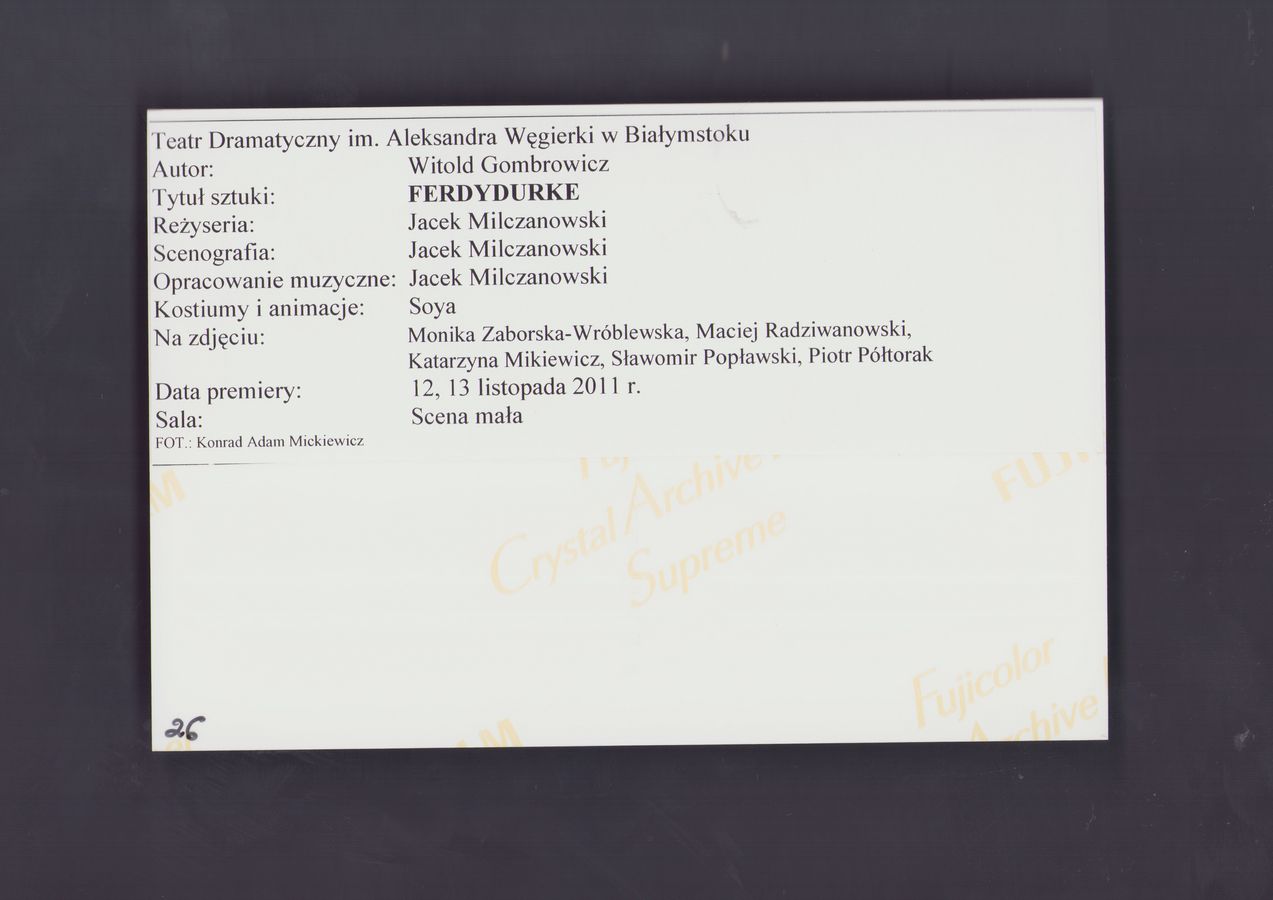 Teatr Dramatyczny im. Aleksandra Węgierki w Białymstoku
Autor: Witold Gombrowicz
Tytuł sztuki: FERDYDURKE
Reżyseria: Jacek Milczanowski
Scenografia: Jacek Milczanowski
Opracowanie muzyczne: Jacek Milczanowski
Kostiumy i animacje: Soya
Na zdjęciu: Monika Zaborska-Wróblewska, Maciej Radziwanowski,
Katarzyna Mikiewicz, Sławomir Popławski, Piotr Półtorak
Data premiery: 12, 13 listopada 2011 r.
Sala: Scena mała
FOT.: Konrad Adam Mickiewicz
Crystal Archive
Supreme
Fujicolor
Archive
26